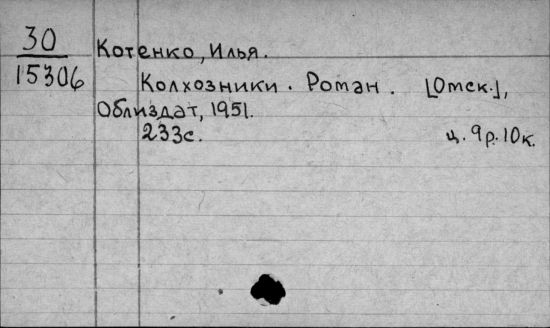 30
15306
Котенко, Илья.
Колхозники. Роман. [Омск.],
Облиздат, 1951.
233с. ц. 9р. 10к.